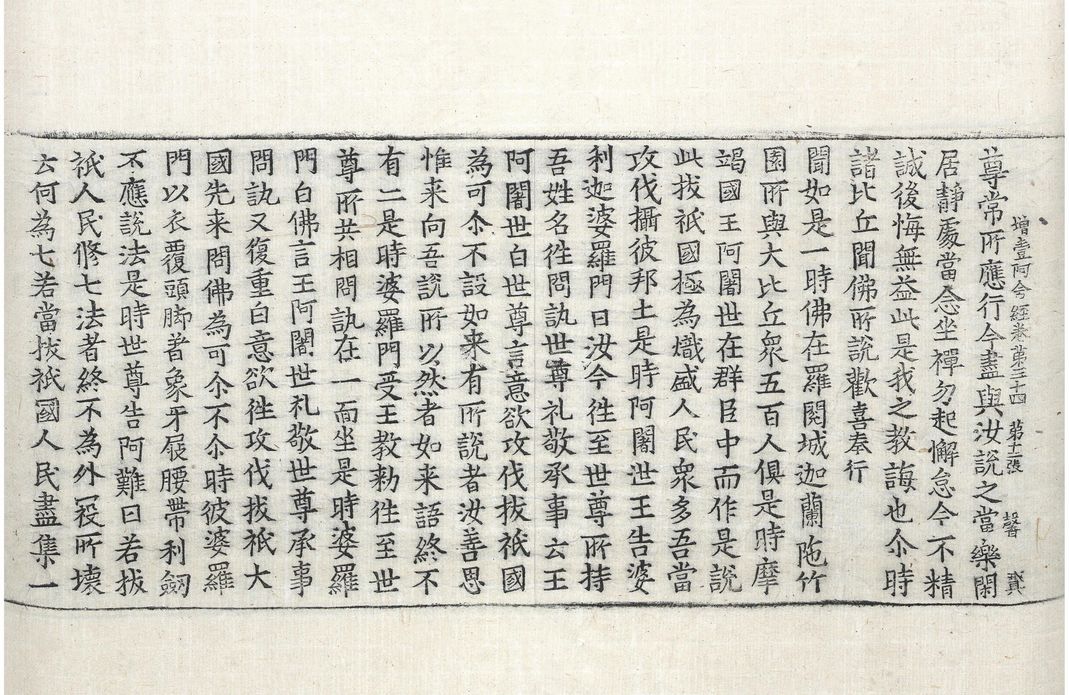 尊常所應行今盡與汝說之當樂閑
增壹阿含經卷第三十四 第十二張 馨
居靜處當念坐禪勿起懈怠今不精
誠後悔無益此是我之教誨也尒時
諸比丘聞佛所說歡喜奉行
聞如是一時佛在羅閱城迦蘭陁竹
園所與大比丘衆五百人俱是時摩
竭國王阿闍世在群臣中而作是說
此拔祇國極為熾盛人民衆多吾當
攻伐攝彼邦土是時阿闍世王告婆
利迦婆羅門曰汝今徃至世尊所持
吾姓名徃問訊世尊礼敬承事云王
阿闍世白世尊言意欲攻伐拔祇國
為可尒不設如来有所說者汝善思
惟来向吾說所以然者如来語終不
有二是時婆羅門受王教勑徃至世
尊所共相問訊在一面坐是時婆羅
門白佛言王阿闍世礼敬世尊承事
問訊又復重白意欲徃攻伐拔祇大
國先来問佛為可尒不尒時彼婆羅
門以衣覆頭脚著象牙屐腰帶利劒
不應說法是時世尊告阿難曰若拔
祇人民修七法者終不為外㓂所壞
云何為七若當拔祇國人民盡集一